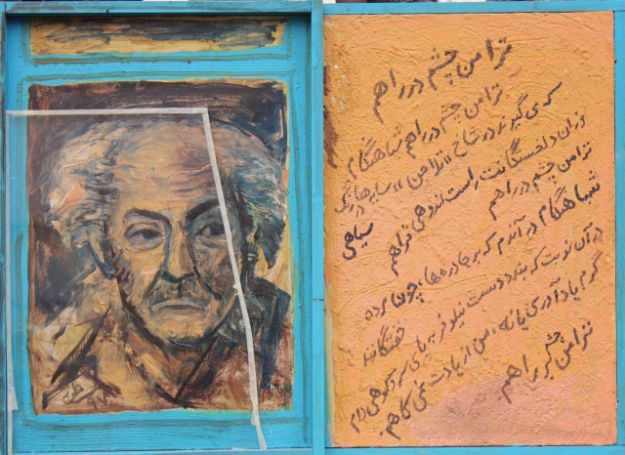 ترا من چشم در راهم
ترا من چشم در راهم شباهنگام
که می گیرند در شاخ «تلاجن» سایه ها رنگ
سیاهی
وزان دلخستگانت راست اندوهی فراهم
ترا من چشم در راهم
شباهنگام در آندم که بر جا دره ها چون مرده
خفتگانند
در آن نوبت که بندد دست نیلوفر به پای سرو کوهی دام
گرم یاد آوری یا نه، من از یادت نمی کاهم
ترا من چشم در راهم.